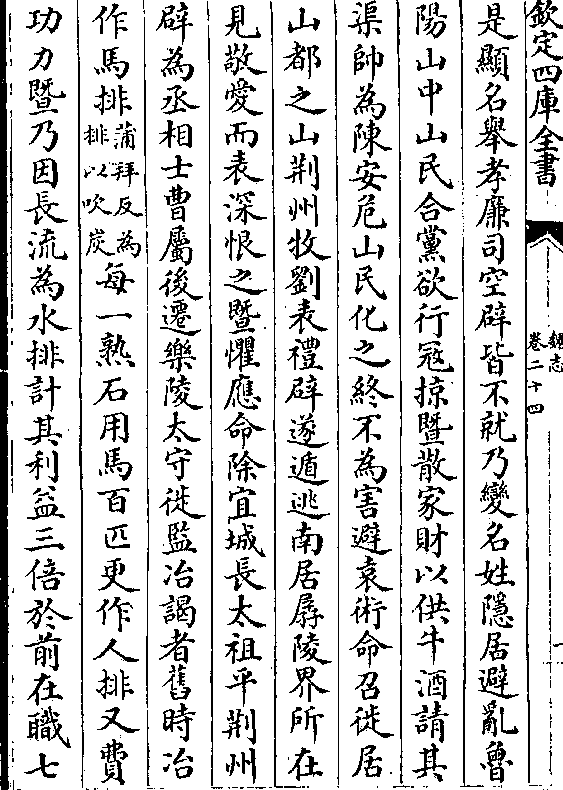 欽定四庫全書
魏志
卷二十四
是顯名舉孝廉司空辟皆不就乃變名姓隱居避亂魯
陽山中山民合黨欲行冦掠暨散家財以供牛酒請其
渠帥為陳安危山民化之終不為害避袁術命召徙居
山都之山荆州牧劉表禮辟遂遁逃南居孱陵界所在
見敬愛而表深恨之暨懼應命除宜城長太祖平荆州
辟為丞相士曹屬後遷樂陵太守徙監冶謁者舊時冶
作馬排蒲拜反為排以吹炭每一熟石用馬百匹更作人排又費
功力暨乃因長流為水排計其利益三倍於前在職七